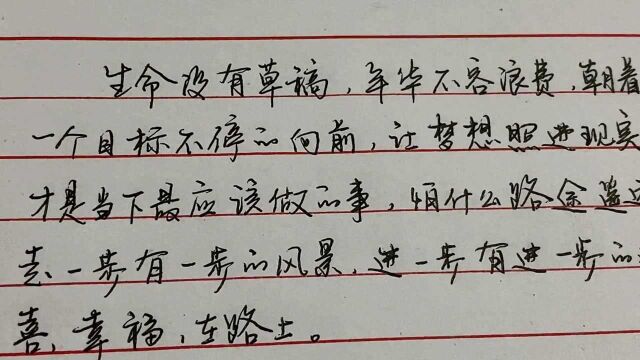 生命没有草稿，年华不容浪费，朝着
一个目标不停的向前，让梦想照进现实
才是当下最应该做的事，怕什么路途遥远
走一步有一步的风景，进一步有进一步的
喜，幸福，在路上。